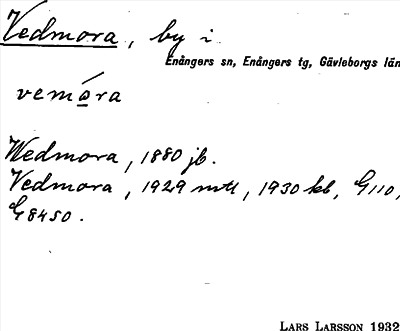 Vedmora, by i
Enångers sn, Enångers tg, Gävleborgs län
vemóra
Wedmora, 1880 jb.
Vedmora, 1929 mtl, 1930 kb, G110,
G8450.
LARS LARSSON 1932